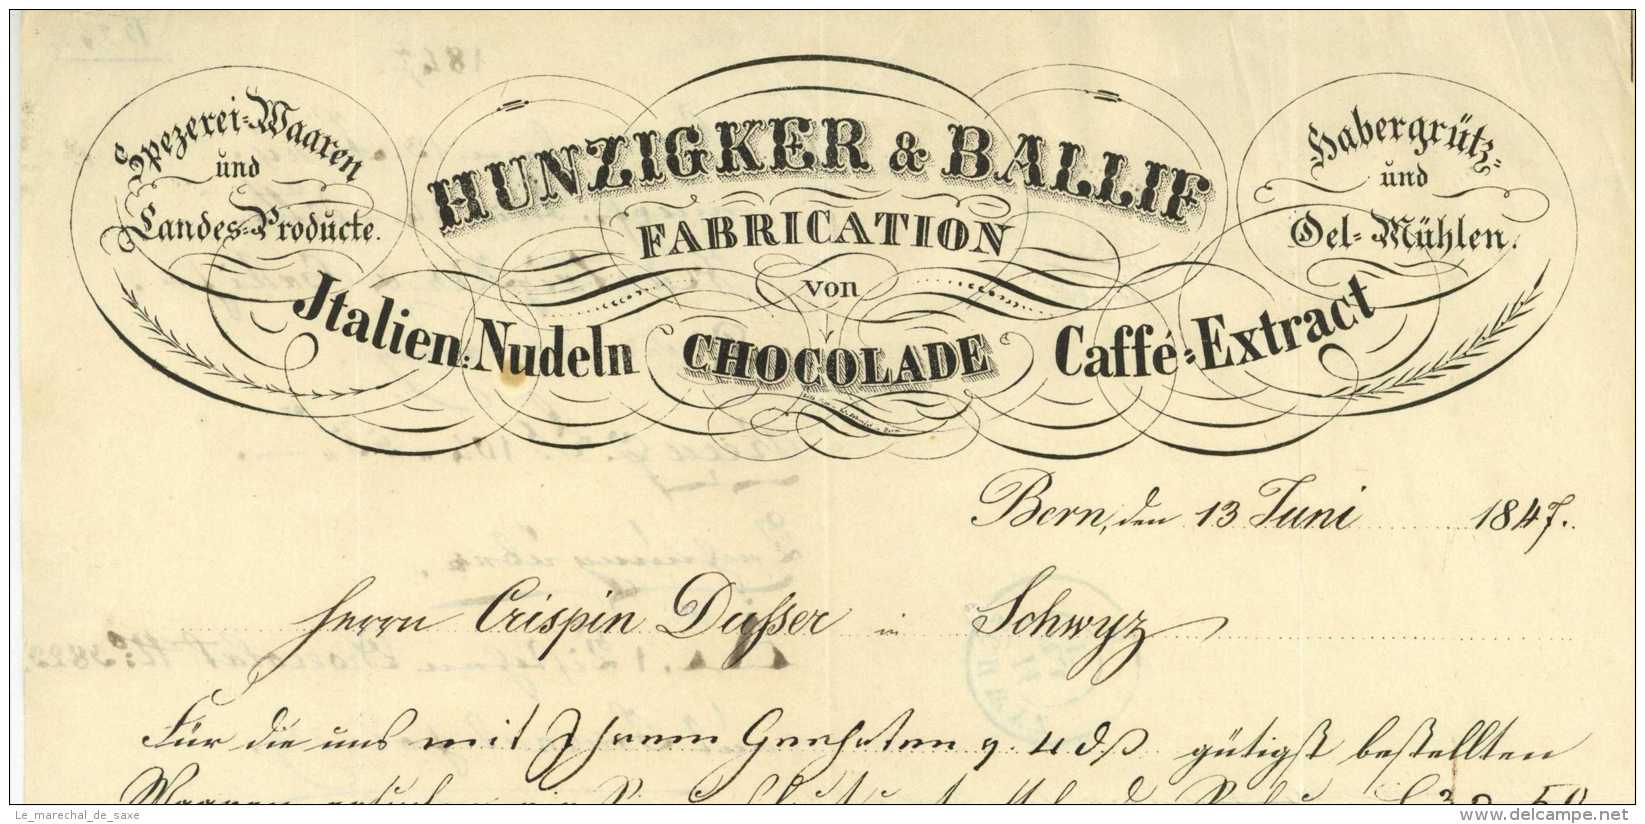 Spezerei-Waaren
und
Landes-Producte.
HUNZIGKER & BALLIF
FABRICATION
von
Italien: Nudeln CHOCOLADE Caffé-Extract
Habergrütz-
und
Oel-Mühlen.
Bern, den 13 Juni 1847.
Herrn Crispin Dusser in Schwyz
Für die uns mit Ihrem Geehrten v. 4 ds gütigst bestellten
Waaren
Le_marechal_de_saxe
www.delcampe.net